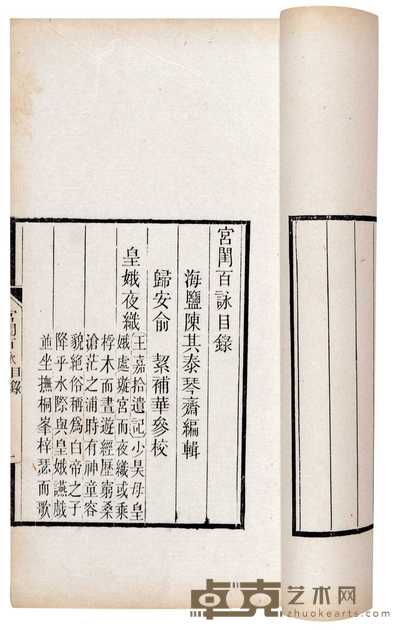 宮閨百詠目錄
海鹽陳其泰琴齋編輯
歸安俞 絜補華參校
皇娥夜織
王嘉拾遺記少昊母皇
娥處璇宮而夜織或乘
桴木而晝遊經歷窮桑
滄茫之浦時有神童容
貌絕俗稱爲白帝之子
降乎水際與皇娥讌戲
並坐撫桐峯梓瑟而歌
宮閨百詠目錄
一
卓克艺术网
zhuokearts.com